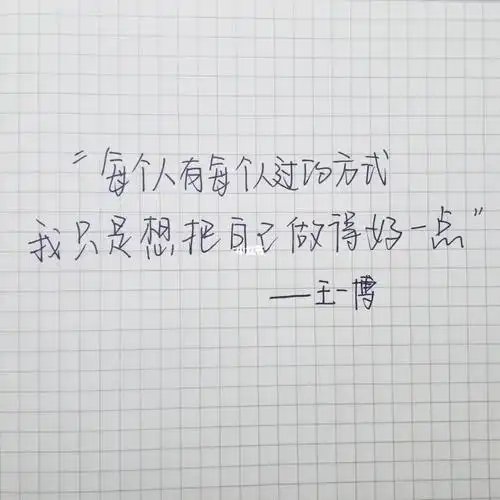 "每个人有每个人过的方式
我只是想把自己做得好一点"
——王一博